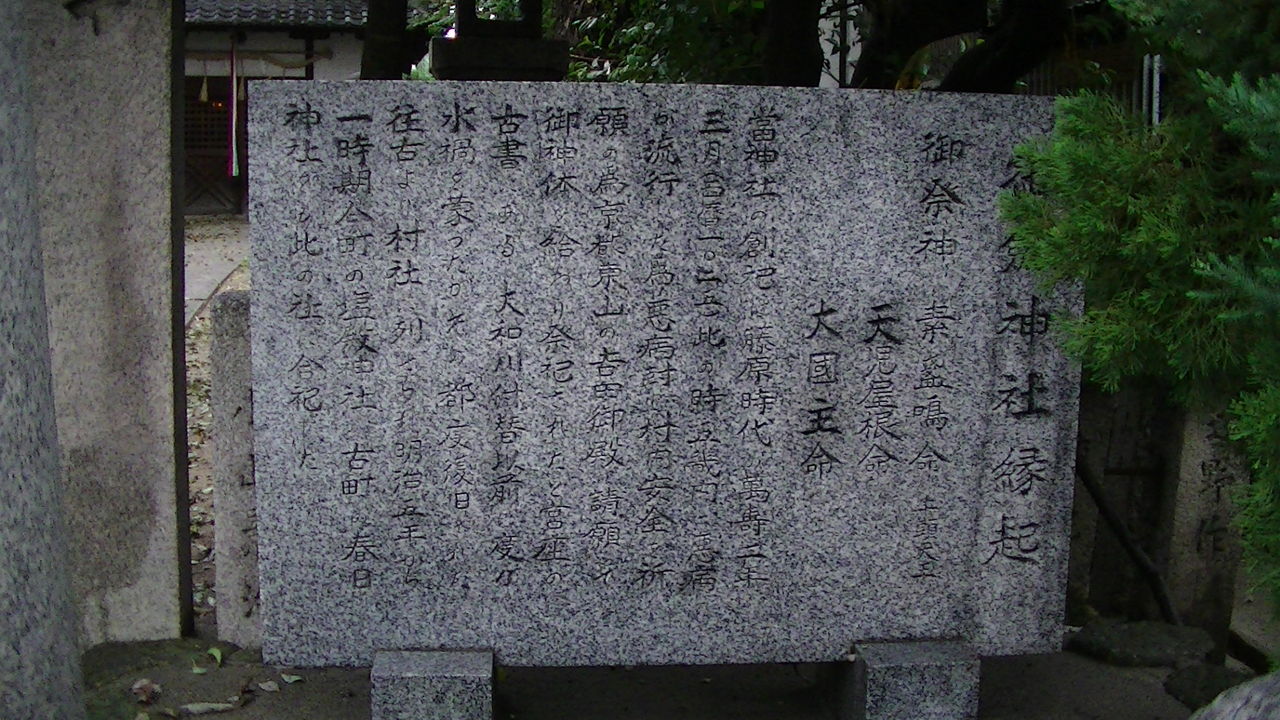 神社縁起
御祭神 素盞鳴命 牛頭天王
天児屋根命
大國主命
當神社の創祀は藤原時代萬寿二年
三月 此の時五畿内に悪病
が流行した為悪病封じ村内安全を祈
願の為京都東山の吉田御殿に請願され
御神体を給わり祭祀されたと宮座の
古書にある 大和川付替以前に度々
水禍を蒙ったがその都度復旧された
往古より村社に列せられ明治五年から
一時期今町の塩釜神社 古町の春日
神社がも此の社に合祀した